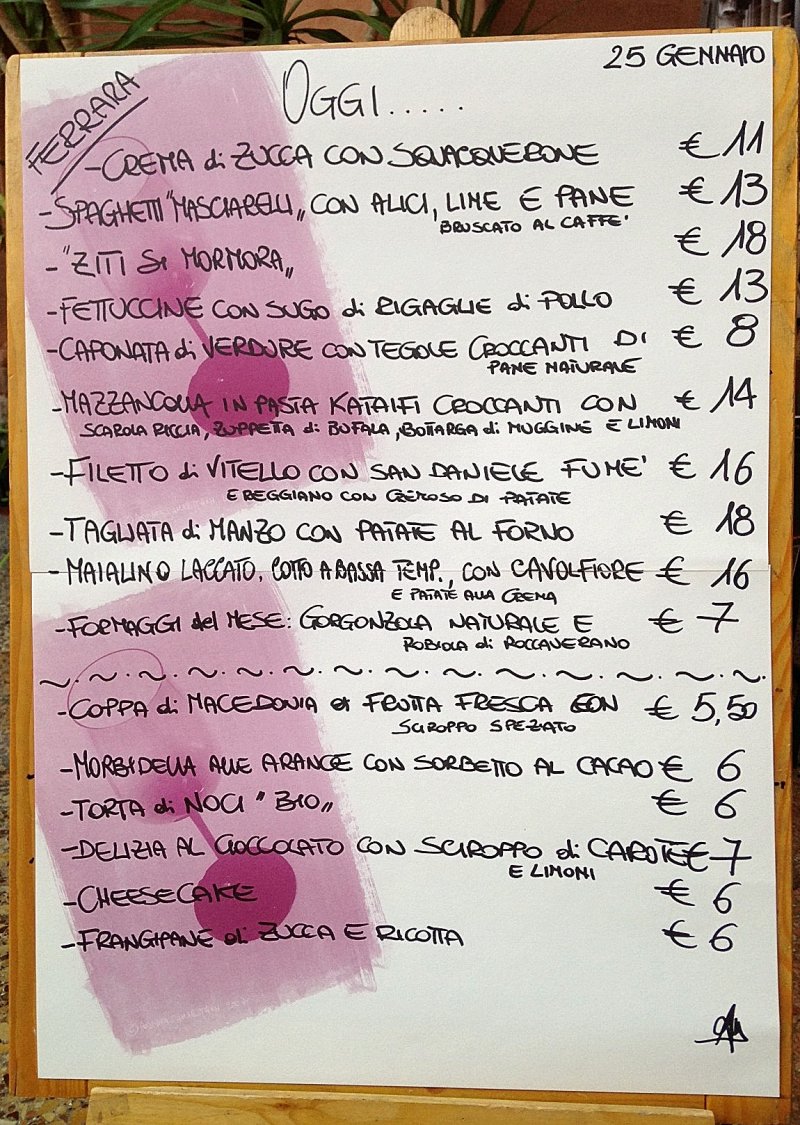 25 GENNAIO
FERRARA
OGGI.....
-CREMA di ZUCCA CON SQUACQUERONE € 11
-SPAGHETTI "MASCIARELLI" CON ALICI, LIME E PANE € 13
BRUSCATO AL CAFFE'
-"ZITI SI MORMORA" € 18
-FETTUCCINE CON SUGO di RIGAGLIE di POLLO € 13
-CAPONATA di VERDURE CON TEGOLE CROCCANTI DI € 8
PANE NATURALE
-MAZZANCOLLA IN PASTA KATAIFI CROCCANTI CON € 14
SCAROLA RICCIA, ZUPPETTA di BUFALA, BOTTARGA di MUGGINE E LIMONI
-FILETTO di VITELLO CON SAN DANIELE FUME' € 16
E REGGIANO CON CREMOSO DI PATATE
-TAGLIATA di MANZO CON PATATE AL FORNO € 18
-MAIALINO LACCATO, COTTO A BASSA TEMP., CON CAVOLFIORE € 16
E PATATE ALLA CREMA
-FORMAGGI del MESE: GORGONZOLA NATURALE E € 7
ROBIOLA di ROCCAVERANO
-COPPA di MACEDONIA di FRUTTA FRESCA CON € 5,50
SCIROPPO SPEZIATO
-MORBIDELLA ALLE ARANCE CON SORBETTO AL CACAO € 6
-TORTA di NOCI "BIO" € 6
-DELIZIA AL CIOCCOLATO CON SCIROPPO di CAROTE € 7
E LIMONI
-CHEESECAKE € 6
-FRANGIPANE di ZUCCA E RICOTTA € 6